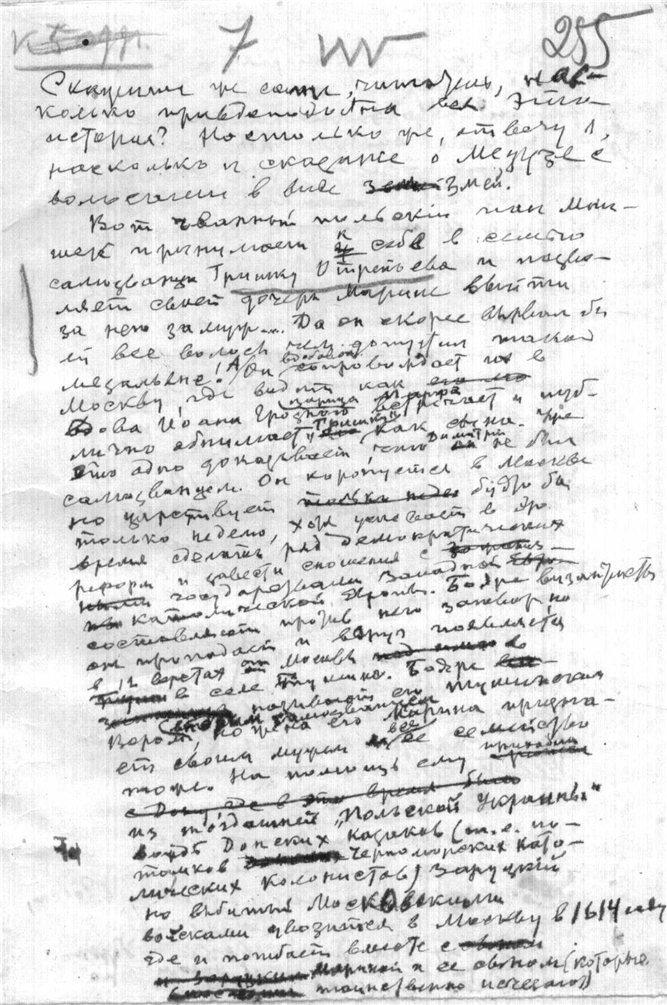 7 255
Скажите же сами, читатель, нас-
колько правдоподобна вся эта
история? Настолько же, отвечу я,
насколько и сказание о Медузе с
волосами в виде змей.
Вот чванный польский пан Мни-
шек принимает к себе в семью
самозванца Гришку Отрепьева и позво-
ляет своей дочери Марине выйти
за него замуж... Да он скорее вырвал бы
ей все волосы, чем допустил такой
мезальянс! А он сопровождает их в
Москву, где видит как
вдова Иоанна Грозного царица Марфа встречает и пуб-
лично обнимает Гришку как сына.
Это одно доказывает что Димитрий не был
самозванцем. Он коронуется в Москве
но царствует будто бы
только неделю, хотя успевает в это
время сделать ряд демократических
реформ и завести сношения с
государствами Западной
католической Европы. Бояре византисты
составляют против него заговор, но
он пропадает и вдруг появляется
в 12 верстах от Москвы
в селе Тушине. Бояре
называют его Тушинским
вором, но жена его Марина призна-
ет своим мужем и все ее семейство
тоже. На помощь ему
из тогдашней „Польской Украины"
вождь Донских казаков (т. е. по-
томков Черноморских като-
лических колонистов) Заруцкий
но взятый Московскими
войсками увозится в Москву в 1614 году
где и погибает вместе с
Мариной и ее сыном (которые
таинственно исчезают)